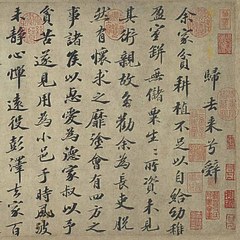 歸去来兮辭
余家貧耕植不足以自給幼稚
盈室缾無儲粟生〻所資未見
其術親故多勸余為長吏脫
然有懷求之靡塗會有四方之
事諸侯以惠愛為德家叔以予
貧苦遂見用為小邑于時風波
未静心憚遠役彭澤去家百